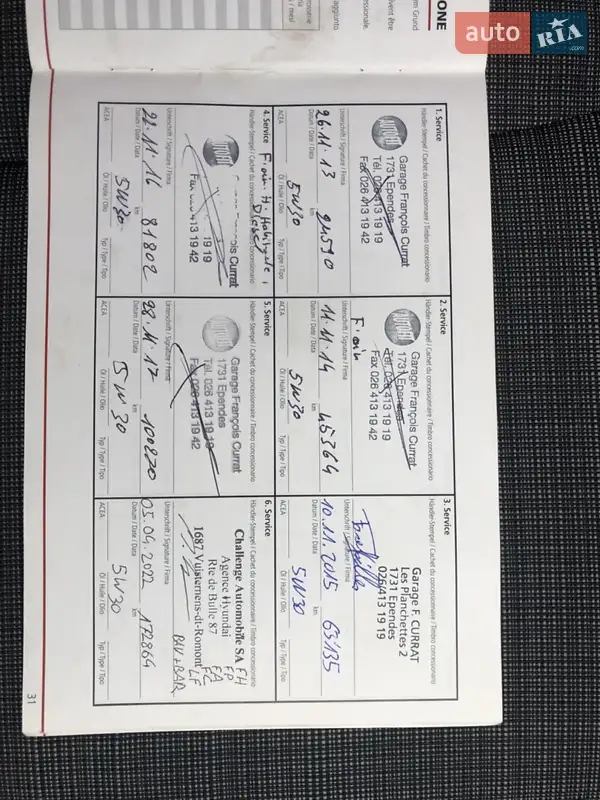 auto RIA.com
ONE
1. Service
Händler-Stempel / Cachet du concessionnaire / Timbro concessionario
Garage François Currat
1731 Ependes
Tél. 026 413 19 19
Fax 026 413 19 42
Unterschrift / Signature / Firma
26.11.13
Datum / Date / Data
km
5W30
ACEA
Öl / Huile / Olio
Typ / Type / Tipo
2. Service
Händler-Stempel / Cachet du concessionnaire / Timbro concessionario
Garage François Currat
1731 Ependes
Tél. 026 413 19 19
Fax 026 413 19 42
Unterschrift / Signature / Firma
14.11.14 45364
Datum / Date / Data
km
5W30
ACEA
Öl / Huile / Olio
Typ / Type / Tipo
3. Service
Händler-Stempel / Cachet du concessionnaire / Timbro concessionario
Garage F. CURRAT
Les Planchettes 2
1731 Ependes
026/413 19 19
Unterschrift / Signature / Firma
10.11.2015 63135
Datum / Date / Data
km
5W30
ACEA
Öl / Huile / Olio
Typ / Type / Tipo
4. Service
Händler-Stempel / Cachet du concessionnaire / Timbro concessionario
ois Currat
19 19
413 19 42
Unterschrift / Signature / Firma
22.11.16 81802
Datum / Date / Data
km
5W30
ACEA
Öl / Huile / Olio
Typ / Type / Tipo
5. Service
Händler-Stempel / Cachet du concessionnaire / Timbro concessionario
Garage François Currat
1731 Ependes
Tél. 026 413 19 19
Fax 026 413 19 42
Unterschrift / Signature / Firma
28.11.17 100270
Datum / Date / Data
km
5W30
ACEA
Öl / Huile / Olio
Typ / Type / Tipo
6. Service
Händler-Stempel / Cachet du concessionnaire / Timbro concessionario
Challenge Automobile SA FH
Agence Hyundai FP
Rte de Bulle 87 FA
1687 Vuisternens-dt-Romont LF
Unterschrift / Signature / Firma
05.04.2022 172864
Datum / Date / Data
km
5W30
ACEA
Öl / Huile / Olio
Typ / Type / Tipo
31